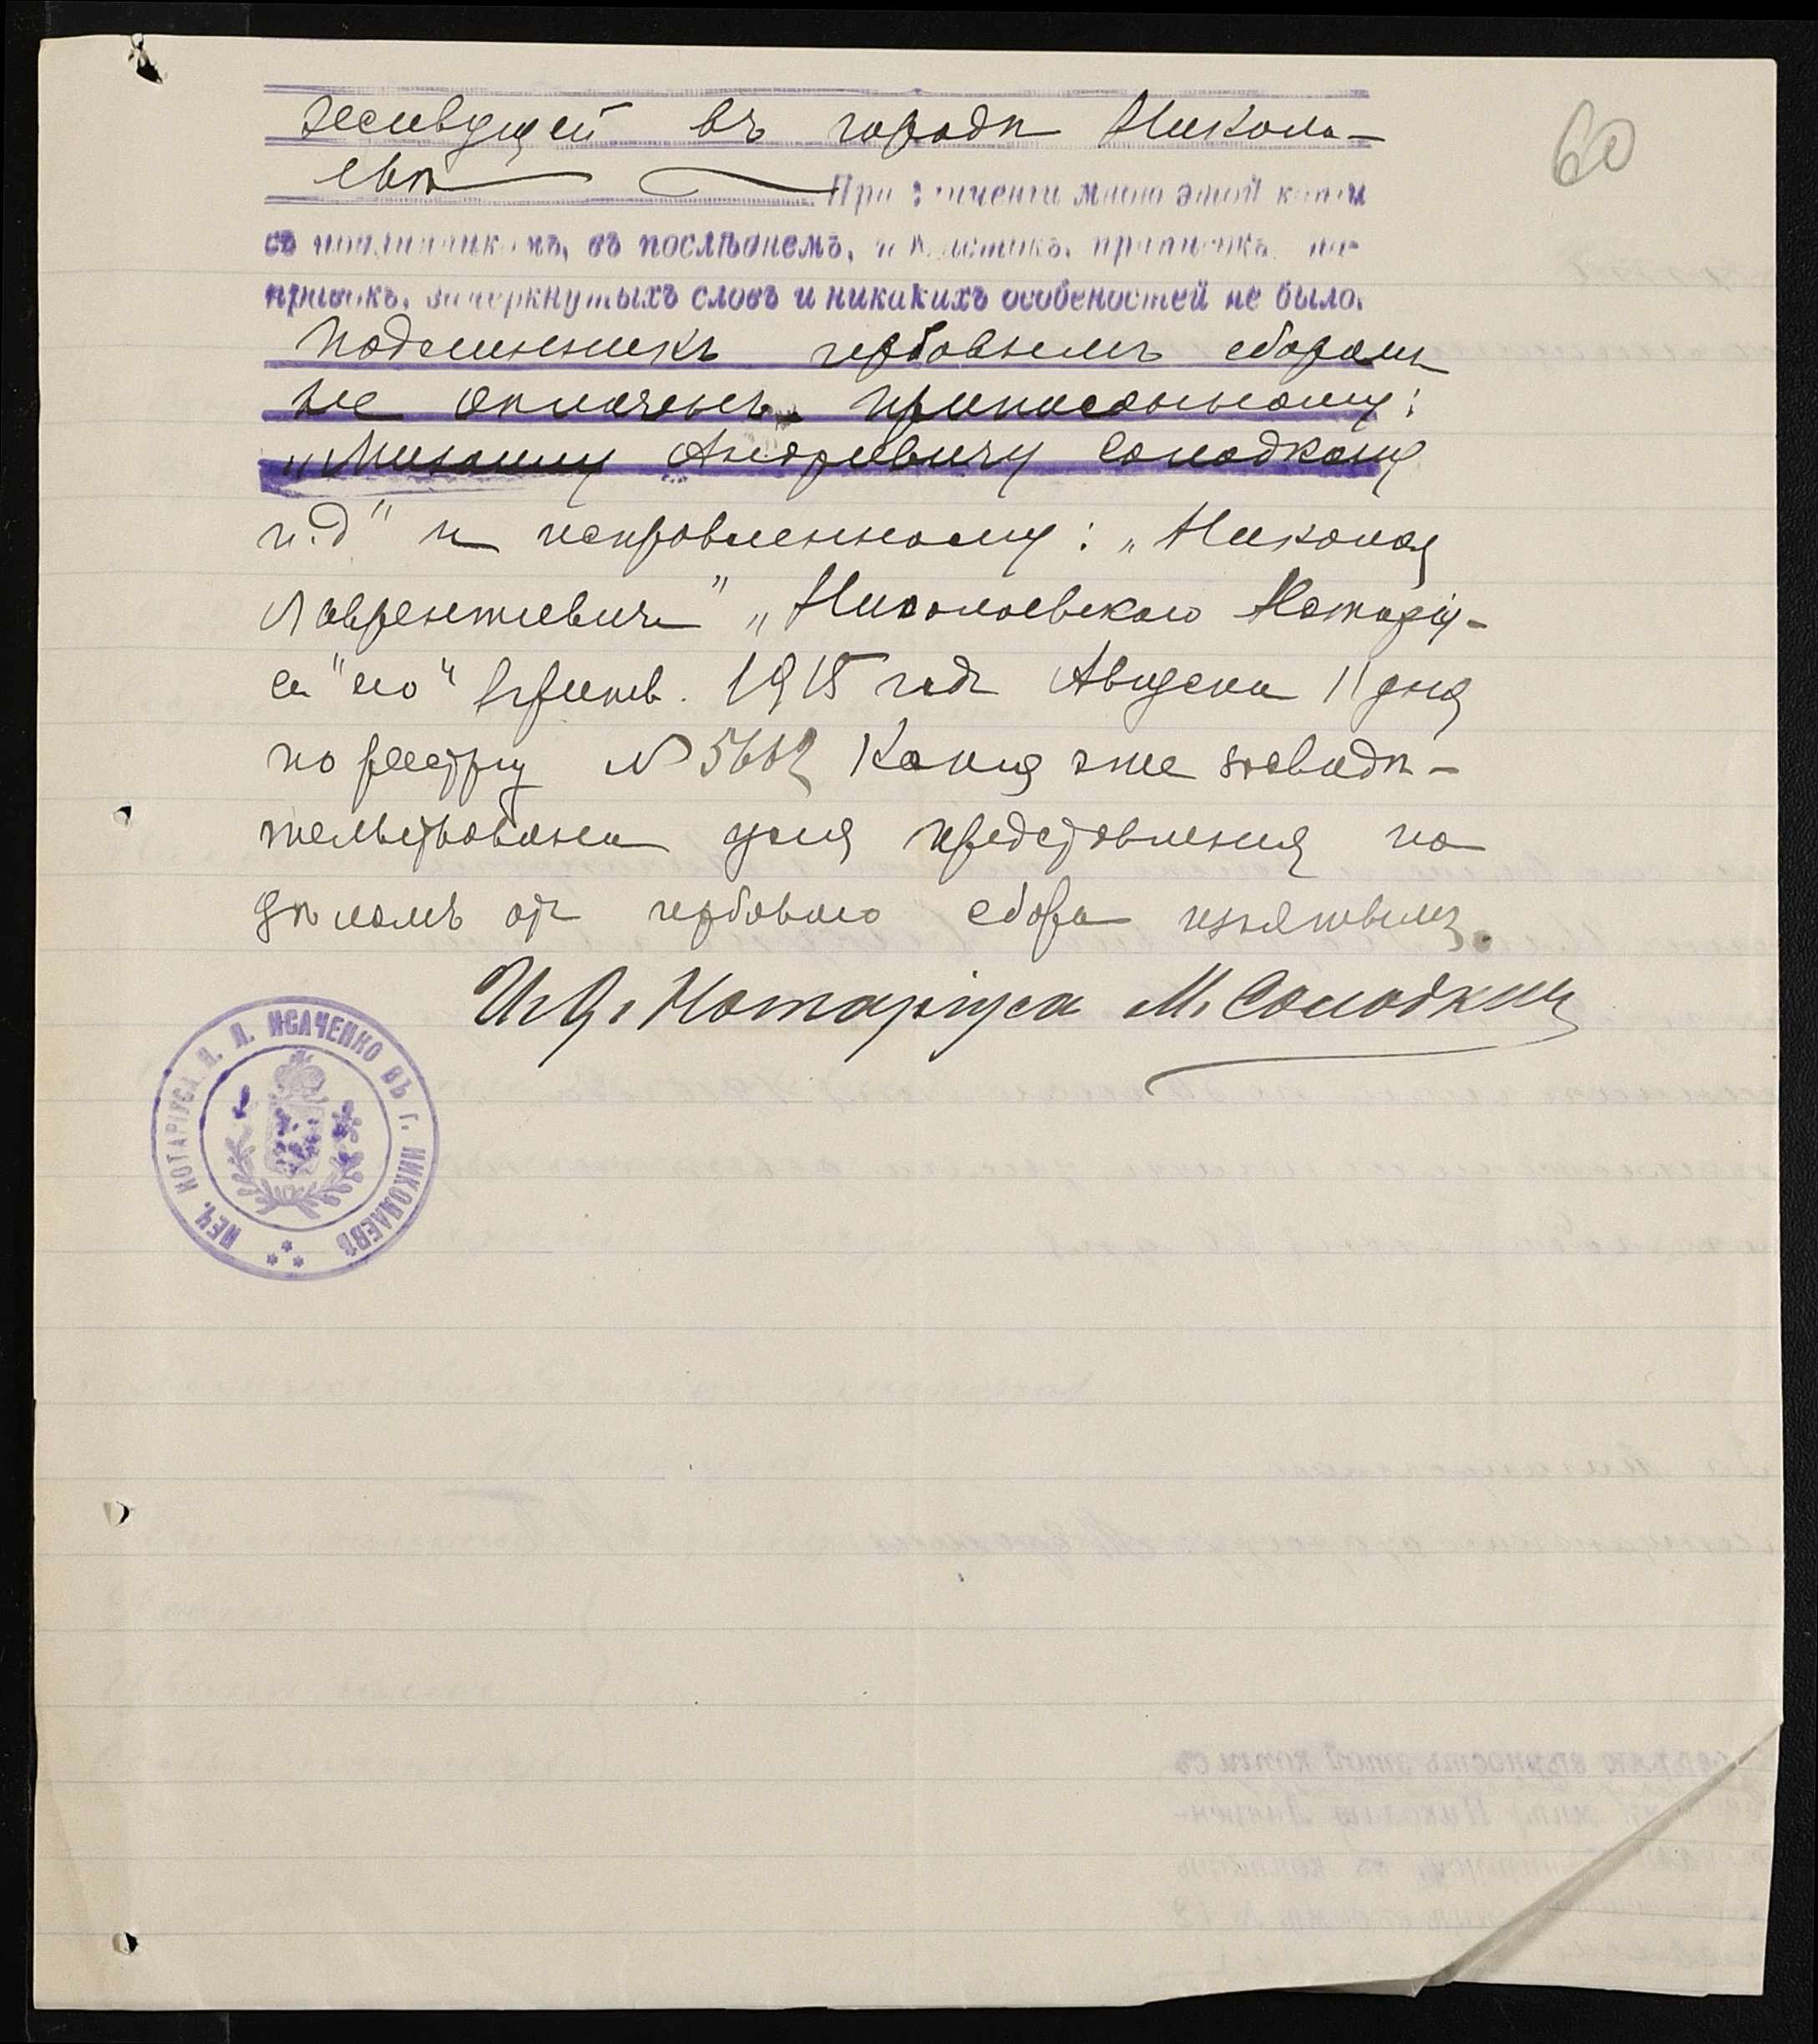 живущей въ городѣ Никола-
евѣ При сличеніи мною этой копіи
съ подлинникомъ, въ послѣднемъ, подчистокъ, приписокъ, по-
правокъ, зачеркнутыхъ словъ и никакихъ особеностей не было.
Подлинникъ гербовымъ сборомъ
не оплаченъ приписанному:
„Михаилу Андреевичу Солодкому
и.д“ и исправленному: „Николая
Лаврентьевича“ „Николаевскаго Нотаріу-
са“ „его“ вѣрить. 1915 года Августа 11 дня
по реестру № 5682 Копія эта засвидѣ-
тельствована для представленія по
дѣламъ отъ гербоваго сбора изъятымъ.
И. д. Нотаріуса М. Солодкій
ПЕЧ. НОТАРІУСА Н. Л. ИСАЧЕНКО ВЪ Г. НИКОЛАЕВѢ
60